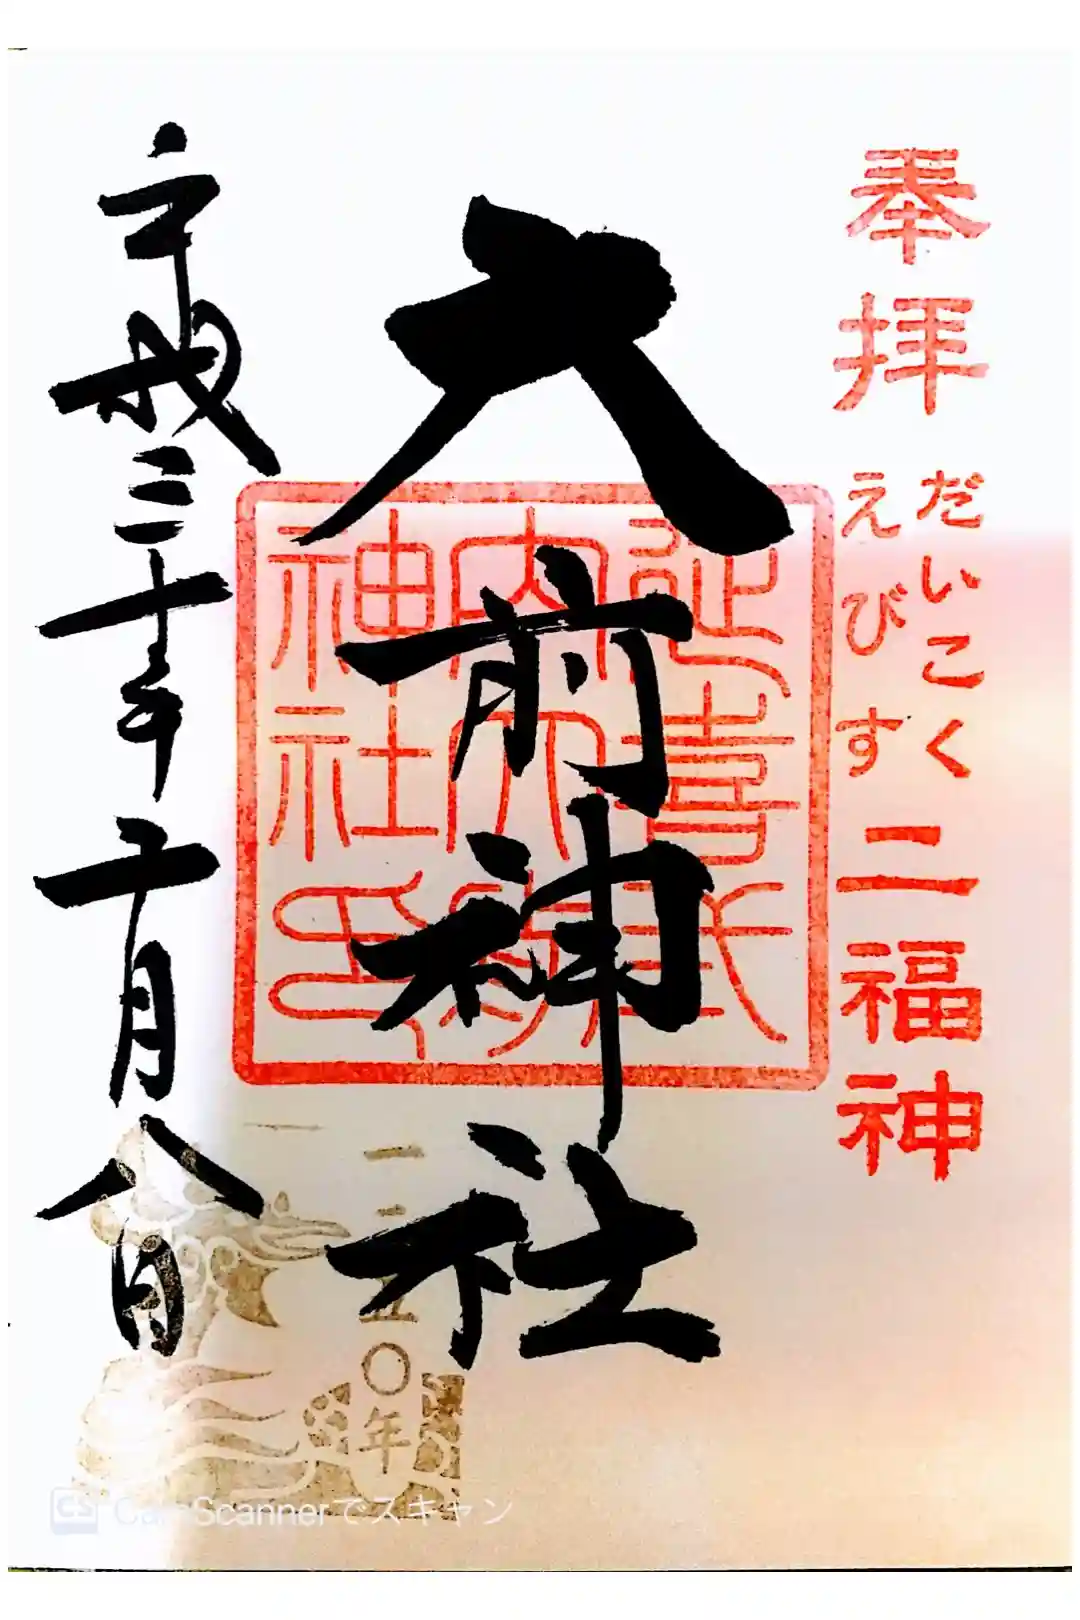 奉拝
だいこく
えびす
二福神
大前神社
延喜式
内大前
神社印
平成三十年十月八日
一二五〇年
CamScannerでスキャン